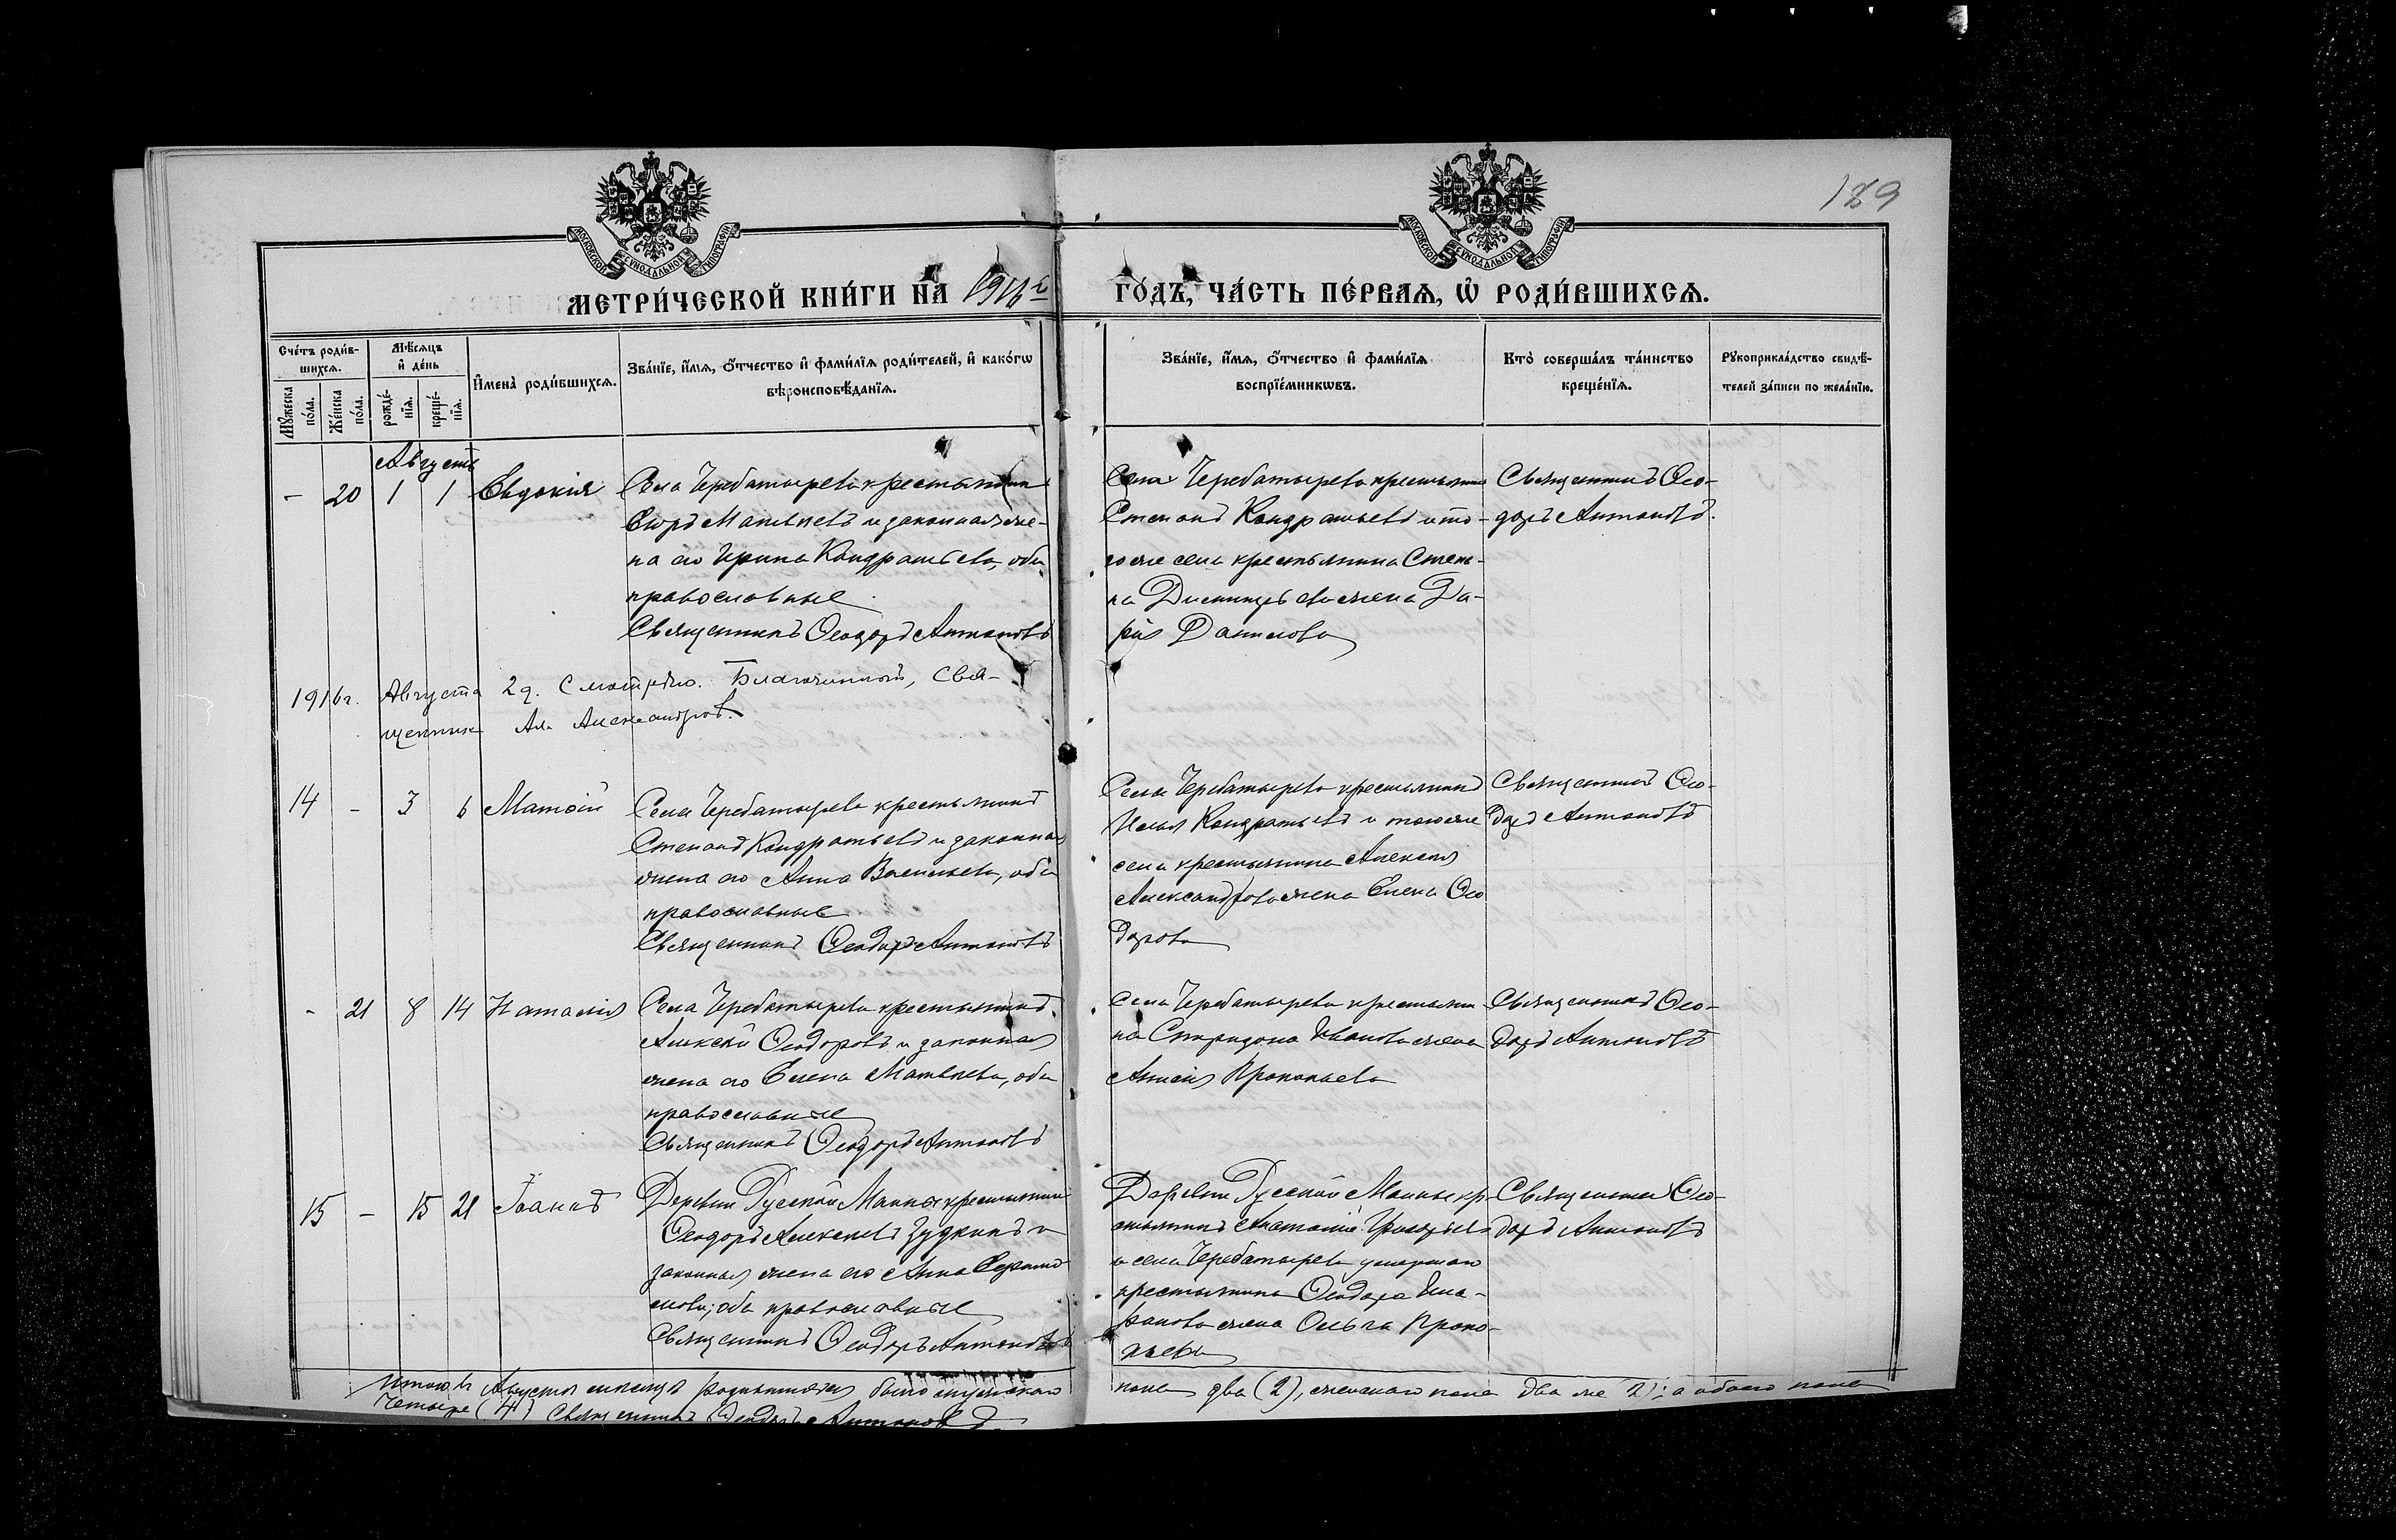 189
МОСКОВСКОЙ СѴНОДАЛЬНОЙ ТИПОГРАФІИ
МОСКОВСКОЙ СѴНОДАЛЬНОЙ ТИПОГРАФІИ
МЕТРИ́ЧЕСКОЙ КНИ́ГИ НА̀ 1916й ГО́ДЪ, ЧА́СТЬ ПЕ́РВАЯ, Ѡ҆ РОДИ́ВШИХСЯ.
Сче́тъ роди́в-
шихся.
Мѣ́сяцъ
и҆ де́нь
И҆мена̀ роди́вшихся.
Зва́нїе, и҆́мя, ѻ҆́тчество и҆ фами́лїя роди́телей, и҆ како́гѡ
вѣроисповѣ́данїя.
Зва́нїе, и҆́мя, ѻ҆́тчество и҆ фами́лїя
воспрїе́мникѡвъ.
Кто̀ соверша́лъ та́инство
креще́нїя.
Рꙋкоприкла́дство свидѣ́-
телей за́писи по жела́нїю.
Мꙋ́жеска
по́ла.
Же́нска
по́ла.
рожде́-
нїя.
креще́-
нїя.
Августъ
- 20 1 1 Евдокія
Села Черебатырева крестьянинъ
Матвѣевъ и законная же-
на его Ирина Кондратьева, оба
православные
Священникъ Ѳеодоръ Антоновъ
Села Черебатырева крестьянинъ
Степанъ Кондратьевъ и то-
го же села крестьянина Степа-
на жена Да-
рія Данилова
Священникъ Ѳео-
доръ Антоновъ.
1916 г. Августа 2 д. Смотрѣлъ. Благочинный, Свя-
щенник Ал. Александров.
14 - 3 6 Матѳій
Села Черебатырева крестьянинъ
Степанъ Кондратьевъ и законная
жена его Анна Васильева, оба
православные
Священникъ Ѳеодоръ Антоновъ
Села Черебатырева крестьянинъ
Илья Кондратьевъ и того же
села крестьянина Алексѣя
Александрова жена Елена Ѳео
дорова
Священникъ Ѳео-
доръ Антоновъ
- 21 8 14 Наталія
Села Черебатырева крестьянинъ
Алексѣй Ѳеодоровъ и законная
жена его Елена Матвѣева, оба
православные
Священникъ Ѳеодоръ Антоновъ
Села Черебатырева крестьяни
на Спиридона Иванова жена
Анисія Прокопьева
Священникъ Ѳео-
доръ Антоновъ
15 - 15 21 Іоаннъ
Деревни Русской Маины крестьянинъ
Ѳеодоръ Алексѣевъ Зудкинъ и
законная жена его Анна
оба православные
Священникъ Ѳеодоръ Антоновъ
Деревни Русской Маины кр-
естьянинъ Анатолій Григорьев
и села Черебатырева умершаго
крестьянина Ѳеодора
жена Ольга Проко-
пьева
Священникъ Ѳео-
доръ Антоновъ
Итого въ Августѣ мѣсяцѣ родившихся было мужскаго пола два (2), женскаго пола два же (2); а обоего пола
Четыре (4) Священникъ Ѳеодоръ Антоновъ